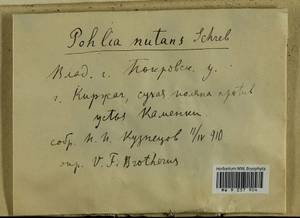 Pohlia nutans Schreb
Влад. г. Покровск. у.
г. Киржач, сухая поляна против
устья Каменки
собр. Н. И. Кузнецов 11/IV 910
опр. V. F. Brotherus
Herbarium MW, Bryophyta
MW 9 037 904